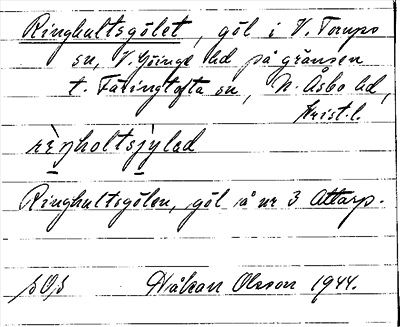 Ringhultsgölet, göl i V. Torups
sn, V. Göinge hd på gränsen
t. Färingtofta sn, N. Åsbo hd,
Krist. l.
rèŋholtsjylad
Ringhultsgölen, göl å nr 3 Attarp.
Håkan Olsson 1944.